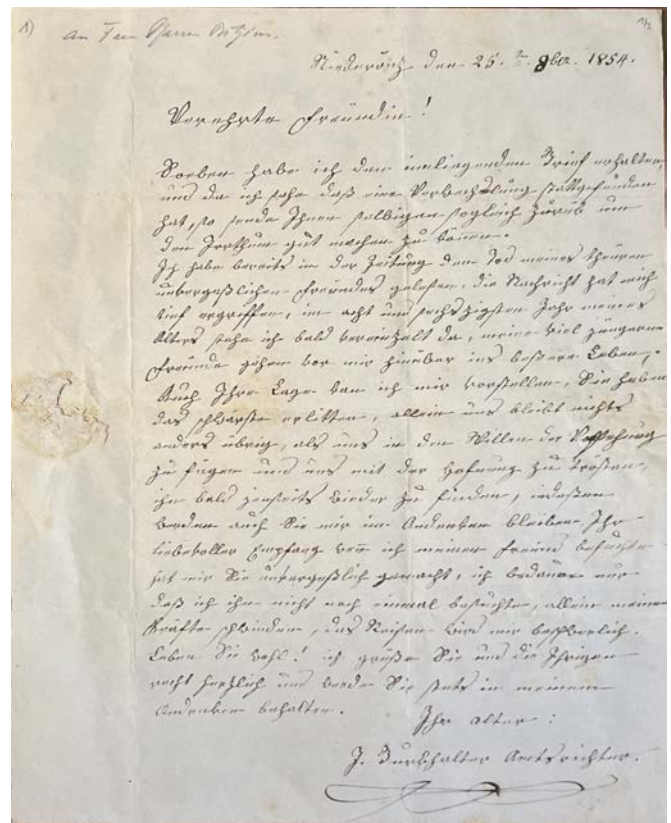 1)
an Frau Pfarrer Bitzius.
Niederönz den 25. 8ber. 1854.
Verehrte Freündin!
Soeben habe ich den inliegenden Brief erhalten,
und da ich sehe daß eine Verwechslung stattgefunden
hat, so sende Ihnen selbigen sogleich zurük um
den Irrthum gut machen zu könen.
Ich habe bereits in der Zeitung den Tod meines theüren
unvergeßlichen Freündes gelesen, die Nachricht hat mich
tief ergriffen, im acht und sechszigsten Jahr meines
Alters stehe ich bald vereinzelt da, meine viel jüngern
Freünde gehen vor mir hinüber ins beßere Leben,
Auch Ihre Lage kan ich mir vorstellen, Sie haben
das schwerste erlitten, allein uns bleibt nichts
anders übrig, als uns in den Willen der Vorsehung
zu fügen und uns mit der Hofnung zu trösten,
ihn bald jenseits wieder zu finden, indeßen
werden auch Sie mir im Andenken bleiben, Ihr
liebevoller Empfang wen ich meinen Freünd besuchte
hat mir Sie unvergeßlich gemacht, ich bedaure nur
daß ich ihn nicht noch einmal besuchte, allein meine
Kräfte schwinden, das Reisen wird mir beschwerlich.
Leben Sie wohl! ich grüße Sie und die Ihrigen
recht herzlich und werde Sie stets in meinem
Andenken behalten.
Ihr alter:
J. Burkhalter Amtsrichter.